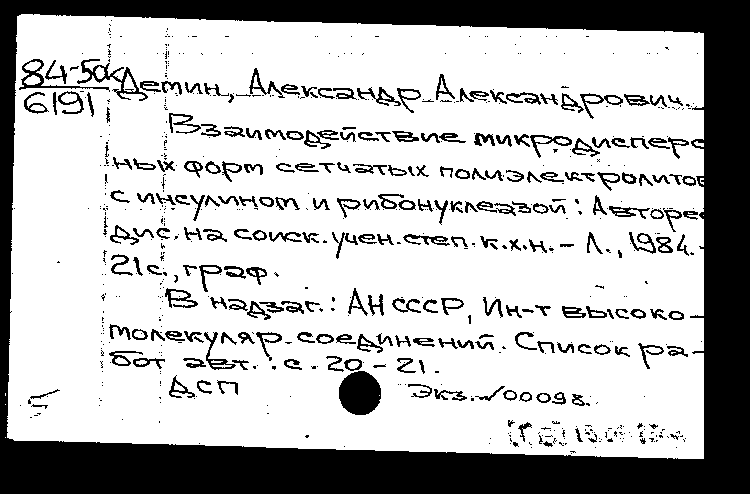 84-5ок
6191
Демин, Александр Александрович.
Взаимодействие микродисперс
ных форм сетчатых полиэлектролитов
с инсулином и рибонуклеазой: Авторе
дис. на соиск. учен. степ. к.х.н. – Л., 1984. –
21 с., граф.
В надзаг.: АН СССР, Ин-т высоко-
молекуляр. соединений. Список ра-
бот авт.: с. 20 – 21.
ДСП Экз. № 00098.